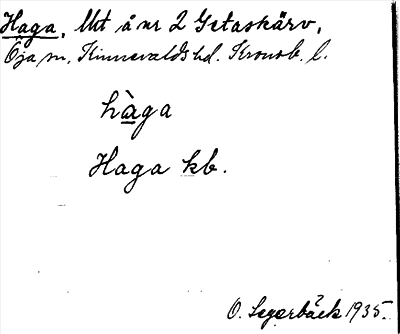 Haga, lht å nr 2 Getaskärv,
Öja sn, Kinnevalds hd. Kronob. l.
hàga
Haga kb.
O. Segerbäck 1935.